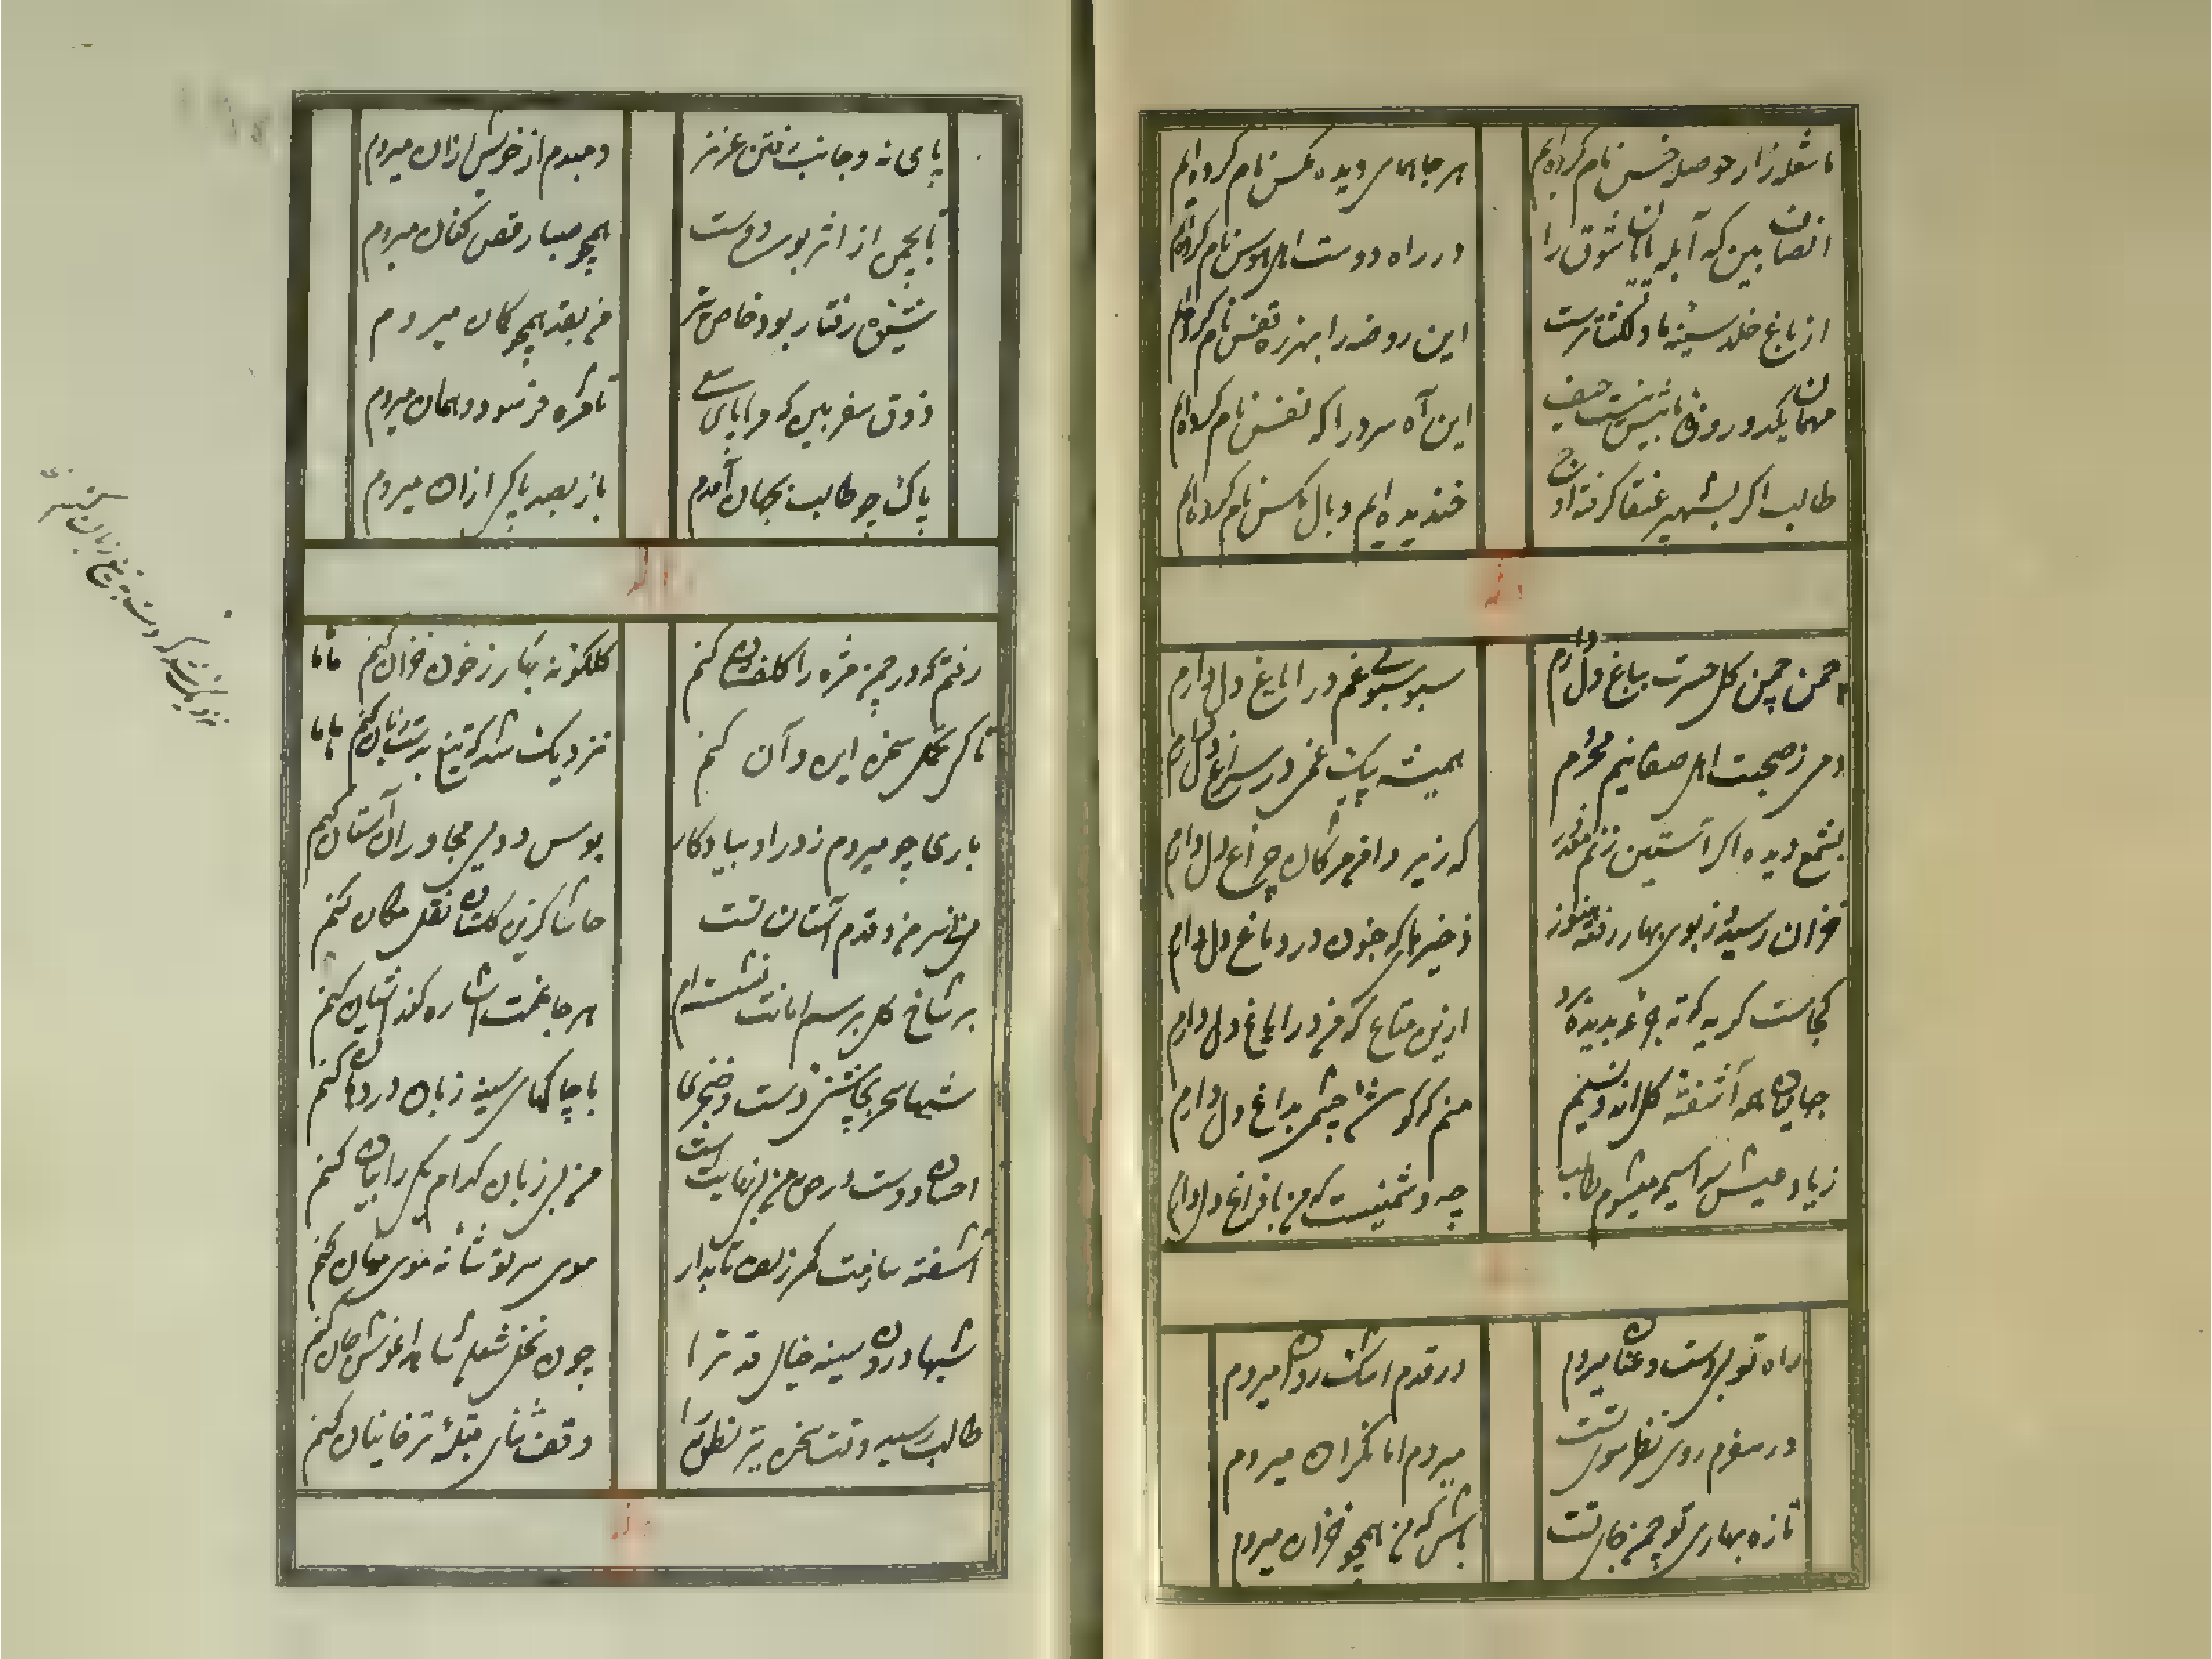 ما شعله زار حوصله خس نام کرده‌ایم
هر جا همای دیده مکس نام کرده‌ایم
انصاف بین که آبله پایان شوق را
در راه دوست اهل هوس نام کرده‌ایم
از باغ خلد سینه ما دلکشاترست
این روضه را بهرزه قفس نام کرده‌ایم
مهمان یکدو روزه ما بیش نیست حیف
این آه سرد را که نفس نام کرده‌ایم
طالب اگر بشهپر عنقا گرفته اوج
خندیده‌ایم و بال مکس نام کرده‌ایم
چمن چمن کل حسرت بباغ دل دارم
سبو سبو می غم در ایاغ دل دارم
دمی ز صحبت اهل صفا نیم محروم
همیشه پیک غمی در سراغ دل دارم
بشمع دیده اگر آستین زنم معذور
که زیر دامن مژکان چراغ دل دارم
خزان رسید و ز بوی بهار رفته هنوز
ذخیرها که جنون در دماغ دل دارم
کجاست کریه که ته جرعه بدیده برد
ازین متاع که من در ایاغ دل دارم
جهانیان همه آشفته کل اند و نسیم
منم که گوشه چشمی بداغ دل دارم
زیاد عیش سراسیمه میشوم طالب
چه دشمنیست که من با فراغ دل دارم
راه تو بی دست و عنان میروم
در قدم اشک روان میروم
در سفرم روی نظر سوی تست
میروم اما نکران میروم
تازه بهاری تو چمن جای تست
باش که من همچو خزان میروم
پای نه و جانب رفتن عزیز
دمبدم از خویش ازان میروم
تا بچمن از اثر بوی دوست
همچو صبا رقص کنان میروم
شیوه رفتار بود خاص تیر
من بعقد همچو کمان میروم
ذوق سفر بین که مرا پای سعی
تا مژه فرسود و همان میروم
پاک چو طالب بجهان آمدم
باز بصد پاکی ازان میروم
رفتم که در چمن مژه را کلفشان کنم
کلکونه بهار ز خون خزان کنم
تا کی تحمل سخن این و آن کنم
نزدیک شد که تیغ بدست زبان کنم
باری چو میروم ز در او بیادکار
بوس دو لبی مجاور آن آستان کنم
من مزد قدم آستان تست
حاشا کزین کلستان نقل مکان کنم
بر شاخ کل برسم امانت نشسته‌ام
هر جا غمت اشاره کند آشیان کنم
با چاکهای سینه زبان در دهان کنم
احسان دوست در حق من بی نهایت است
من بی زبان کدام یکی را بیان کنم
آشفته ساز مت کمر زلف تابدار
موی سر تو شانه بموی میان کنم
شبها درون سینه خیال قد ترا
چون نخل شعله شاهد آغوش جان کنم
طالب رسید وقت سخن تیز نطق را
وقف ثنای قبله ترخانیان کنم
نزدیک شد که دست بتیغ زبان کنم